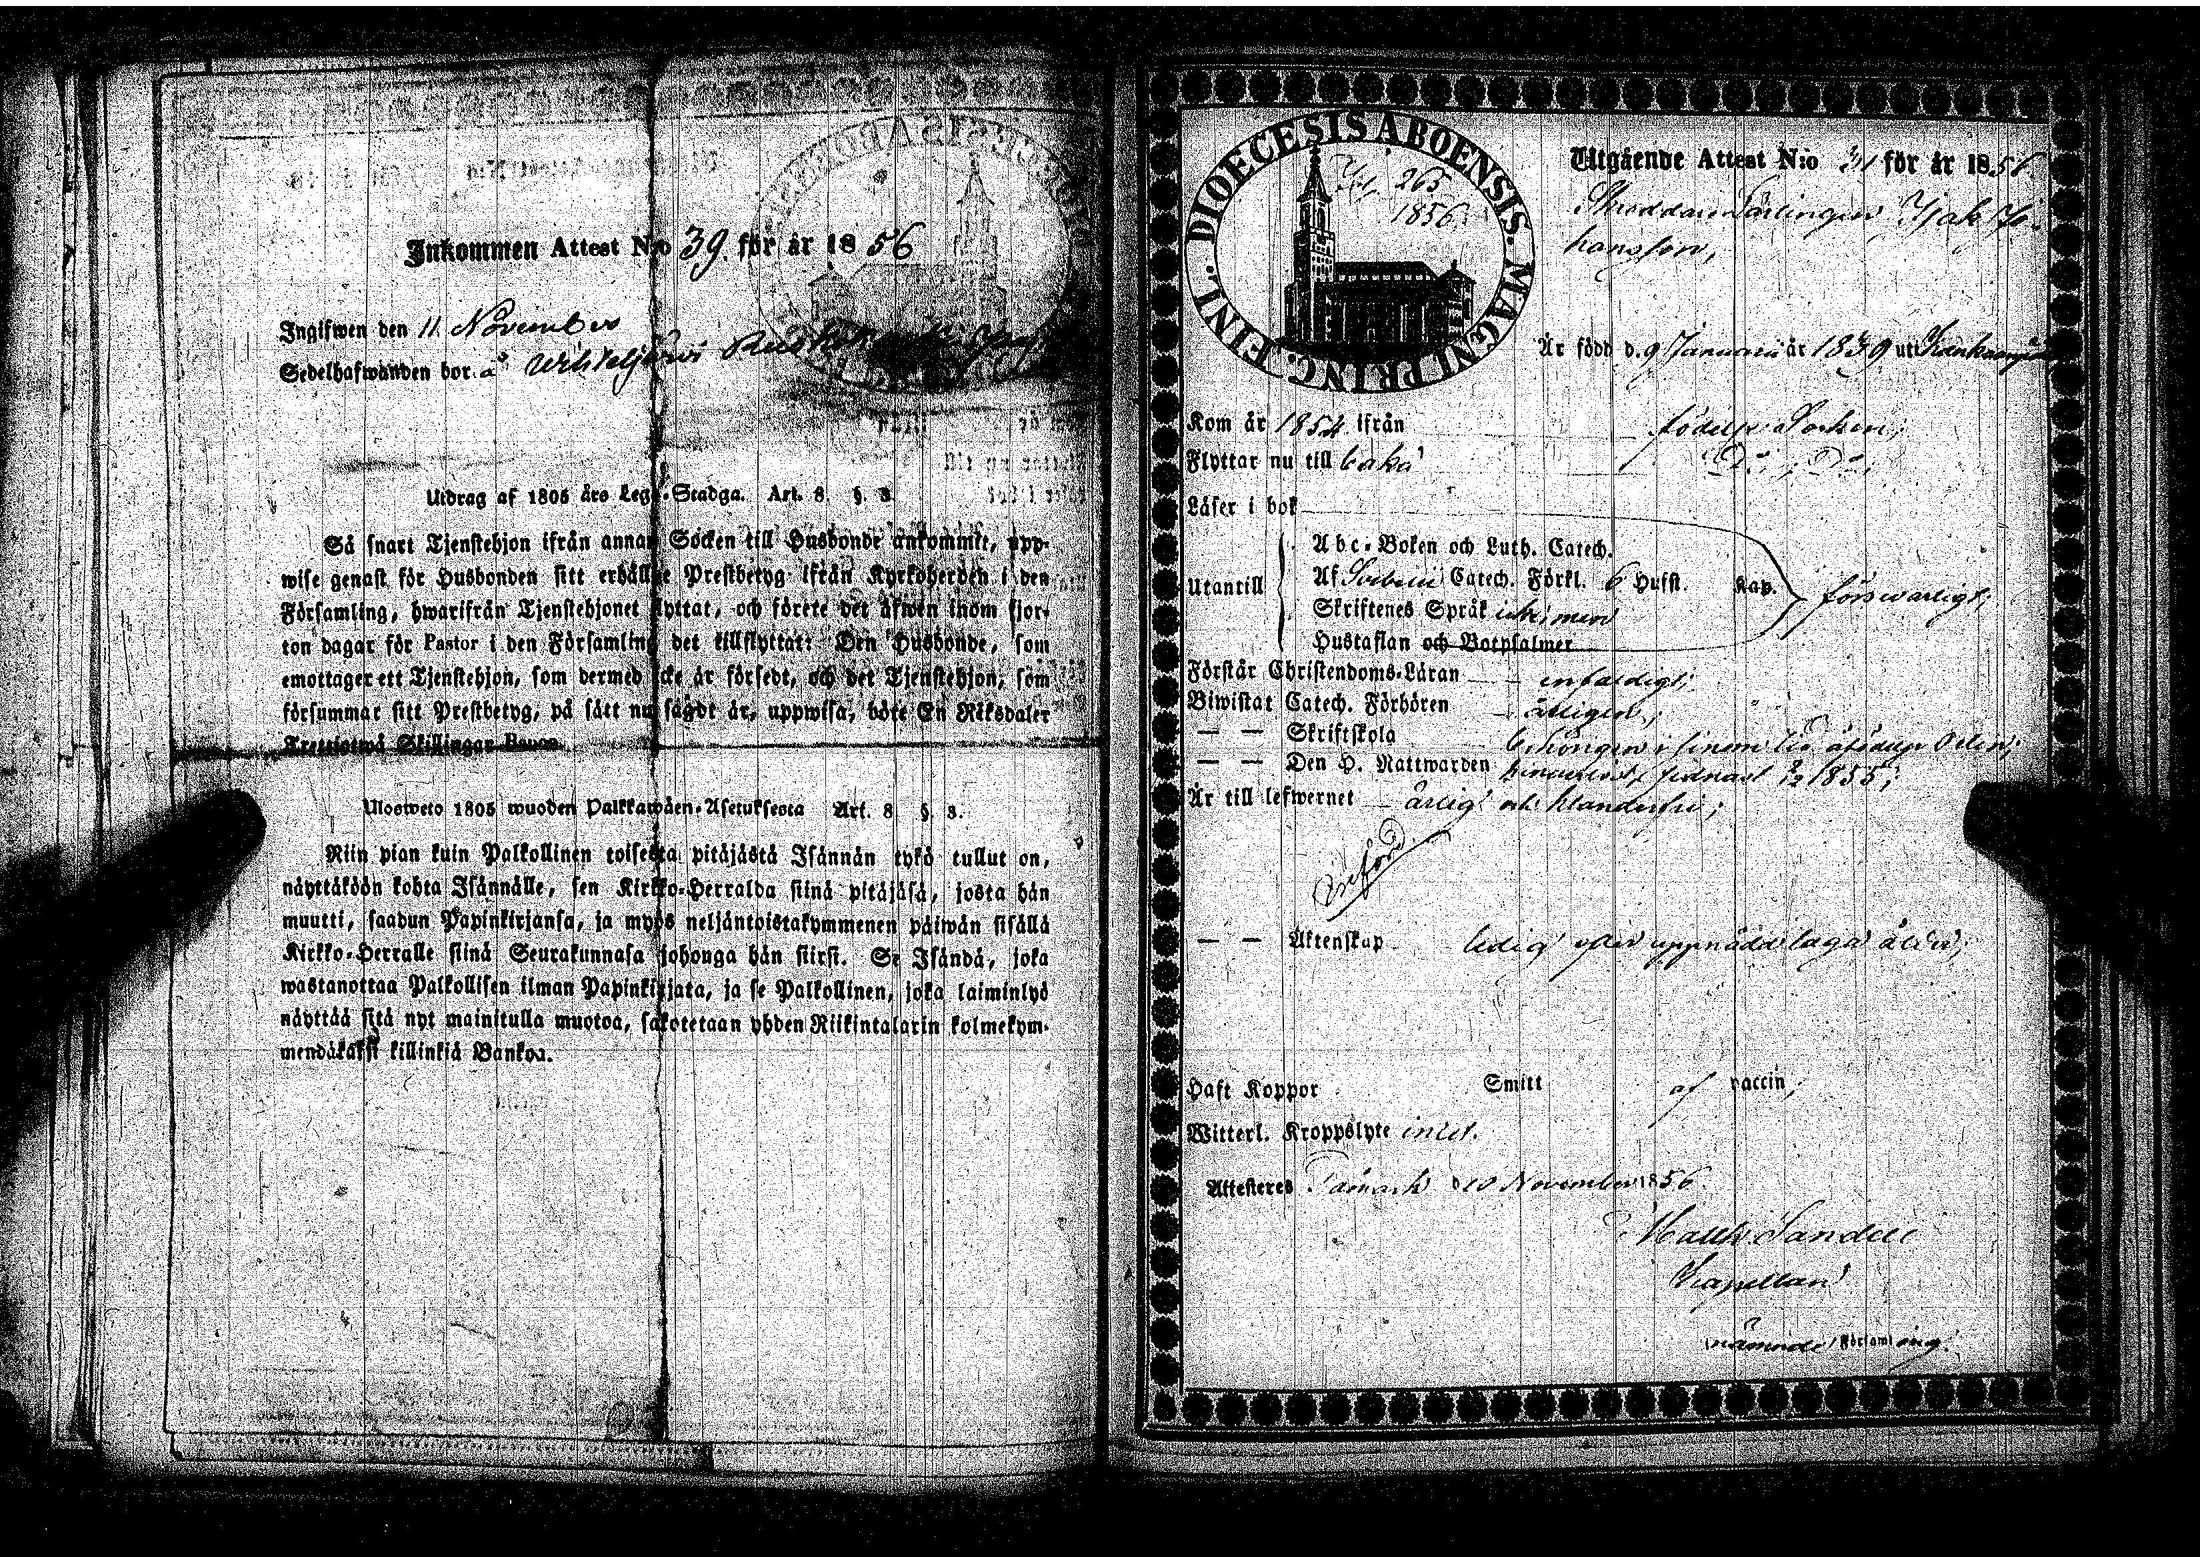 Inkommen Attest N:o 39 för år 1856
Ingifwen den 11 November
Sedelhafwanden bor å
Utdrag af 1805 års Lego-Stadga. Art. 8. §. 3.
Så snart Tjenstehjon ifrån annan Socken till Husbonde ankommit, upp-
wise genast för Husbonden sitt erhållne Prestbetyg ifrån Kyrkoherden i den
Församling, hwarifrån Tjenstehjonet flyttat, och förete det äfwen inom fjor-
ton dagar för Pastor i den Församling det tillflyttat: Den Husbonde, som
emottager ett Tjenstehjon, som dermed icke är försedt, och det Tjenstehjon, som
försummar sitt Prestbetyg, på sätt nu sagdt är, uppwisa, böte En Riksdaler
Trettiotwå Skillingar Banco.
Ulosweto 1805 wuoden Palkkawäen-Asetuksesta Art. 8 §. 3.
Niin pian kuin Palkollinen toisesta pitäjästä Isännän tykö tullut on,
näyttäköön kohta Isännälle, sen Kirkko-Herralda siinä pitäjäsä, josta hän
muutti, saadun Papinkirjansa, ja myös neljäntoistakymmenen päiwän sisällä
Kirkko-Herralle siinä Seurakunnasa johonga hän siirsi. Se Isändä, joka
wastanottaa Palkollisen ilman Papinkirjata, ja se Palkollinen, joka laiminlyö
näyttää sitä nyt mainitulla muotoa, sakotetaan yhden Riikintalarin kolmekym-
mendäkaksi killinkiä Bankoa.
DIOECESIS ABOENSIS. MAGNI PRINC. FINL.
265
1856
Utgående Attest N:o 31 för år 1856
Skräddare Lärlingen Isak Jo-
hansson,
Är född d. 9 Januarii år 1839 uti
Kom år 1854 ifrån födelse Socken;
Flyttar nu till baka
Läser i bok
Utantill
Abc-Boken och Luth. Catech.
Af Svebelii Catech. Förkl. 6 Hufst. Kap. försvarligt;
Skriftenes Språk icke, men
Hustaflan och Botpsalmer
Förstår Christendoms-Läran enfaldigt;
Biwistat Catech. Förhören årligen;
— — Skriftskola
— — Den H. Nattwarden 1855;
Är till lefwernet ärlig och klanderfri;
— — Äktenskap ledig efter uppnådd laga ålder;
Haft Koppor Smitt af vaccin;
Witterl. Kroppslyte intet.
Attesteres d 10 November 1856.
Matth. Sandell
Kapellan
nämnde Församling.